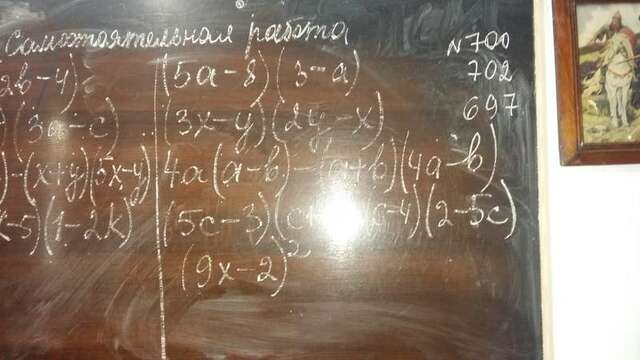 Самостоятельная работа
2b-4)=
(3a-c)
-(x+y)(5x-y)
-5)(1-2k)
(5a-8)(3-a)
(3x-y)(2y-x)
4a(a-b)-(a+b)(4a-b)
(5c-3)(c+ c-4)(2-5c)
(9x-2)²
N700
702
697